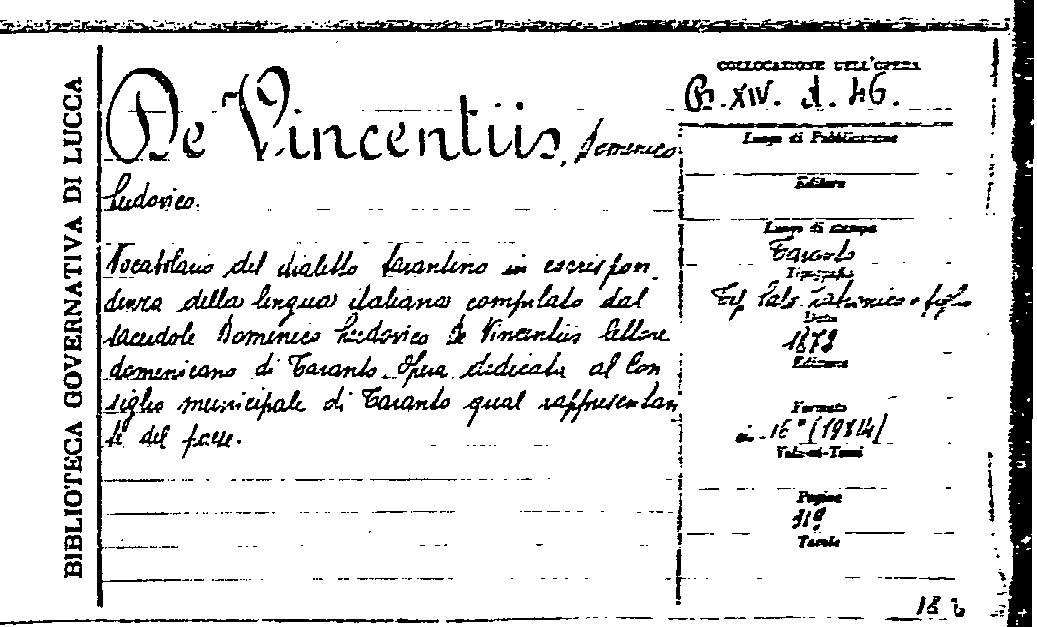 BIBLIOTECA GOVERNATIVA DI LUCCA
De Vincentiis, Domenico
Ludovico.
Vocabolario del dialetto tarantino in corrispon
denza della lingua italiana compilato dal
sacerdote Domenico Ludovico De Vincentiis lettore
domenicano di Taranto. Opera dedicata al Con
siglio municipale di Taranto qual rappresentan
te del paese.
COLLOCAZIONE DELL'OPERA
XIV. d. 46.
Luogo di Pubblicazione
Editore
Luogo di stampa
Taranto
Tipografia
Tip. Salv. Latronico e figlio
Data
1872
Edizione
Formato
in 16° (19x14)
Volumi-Tomi
Pagine
Tavole